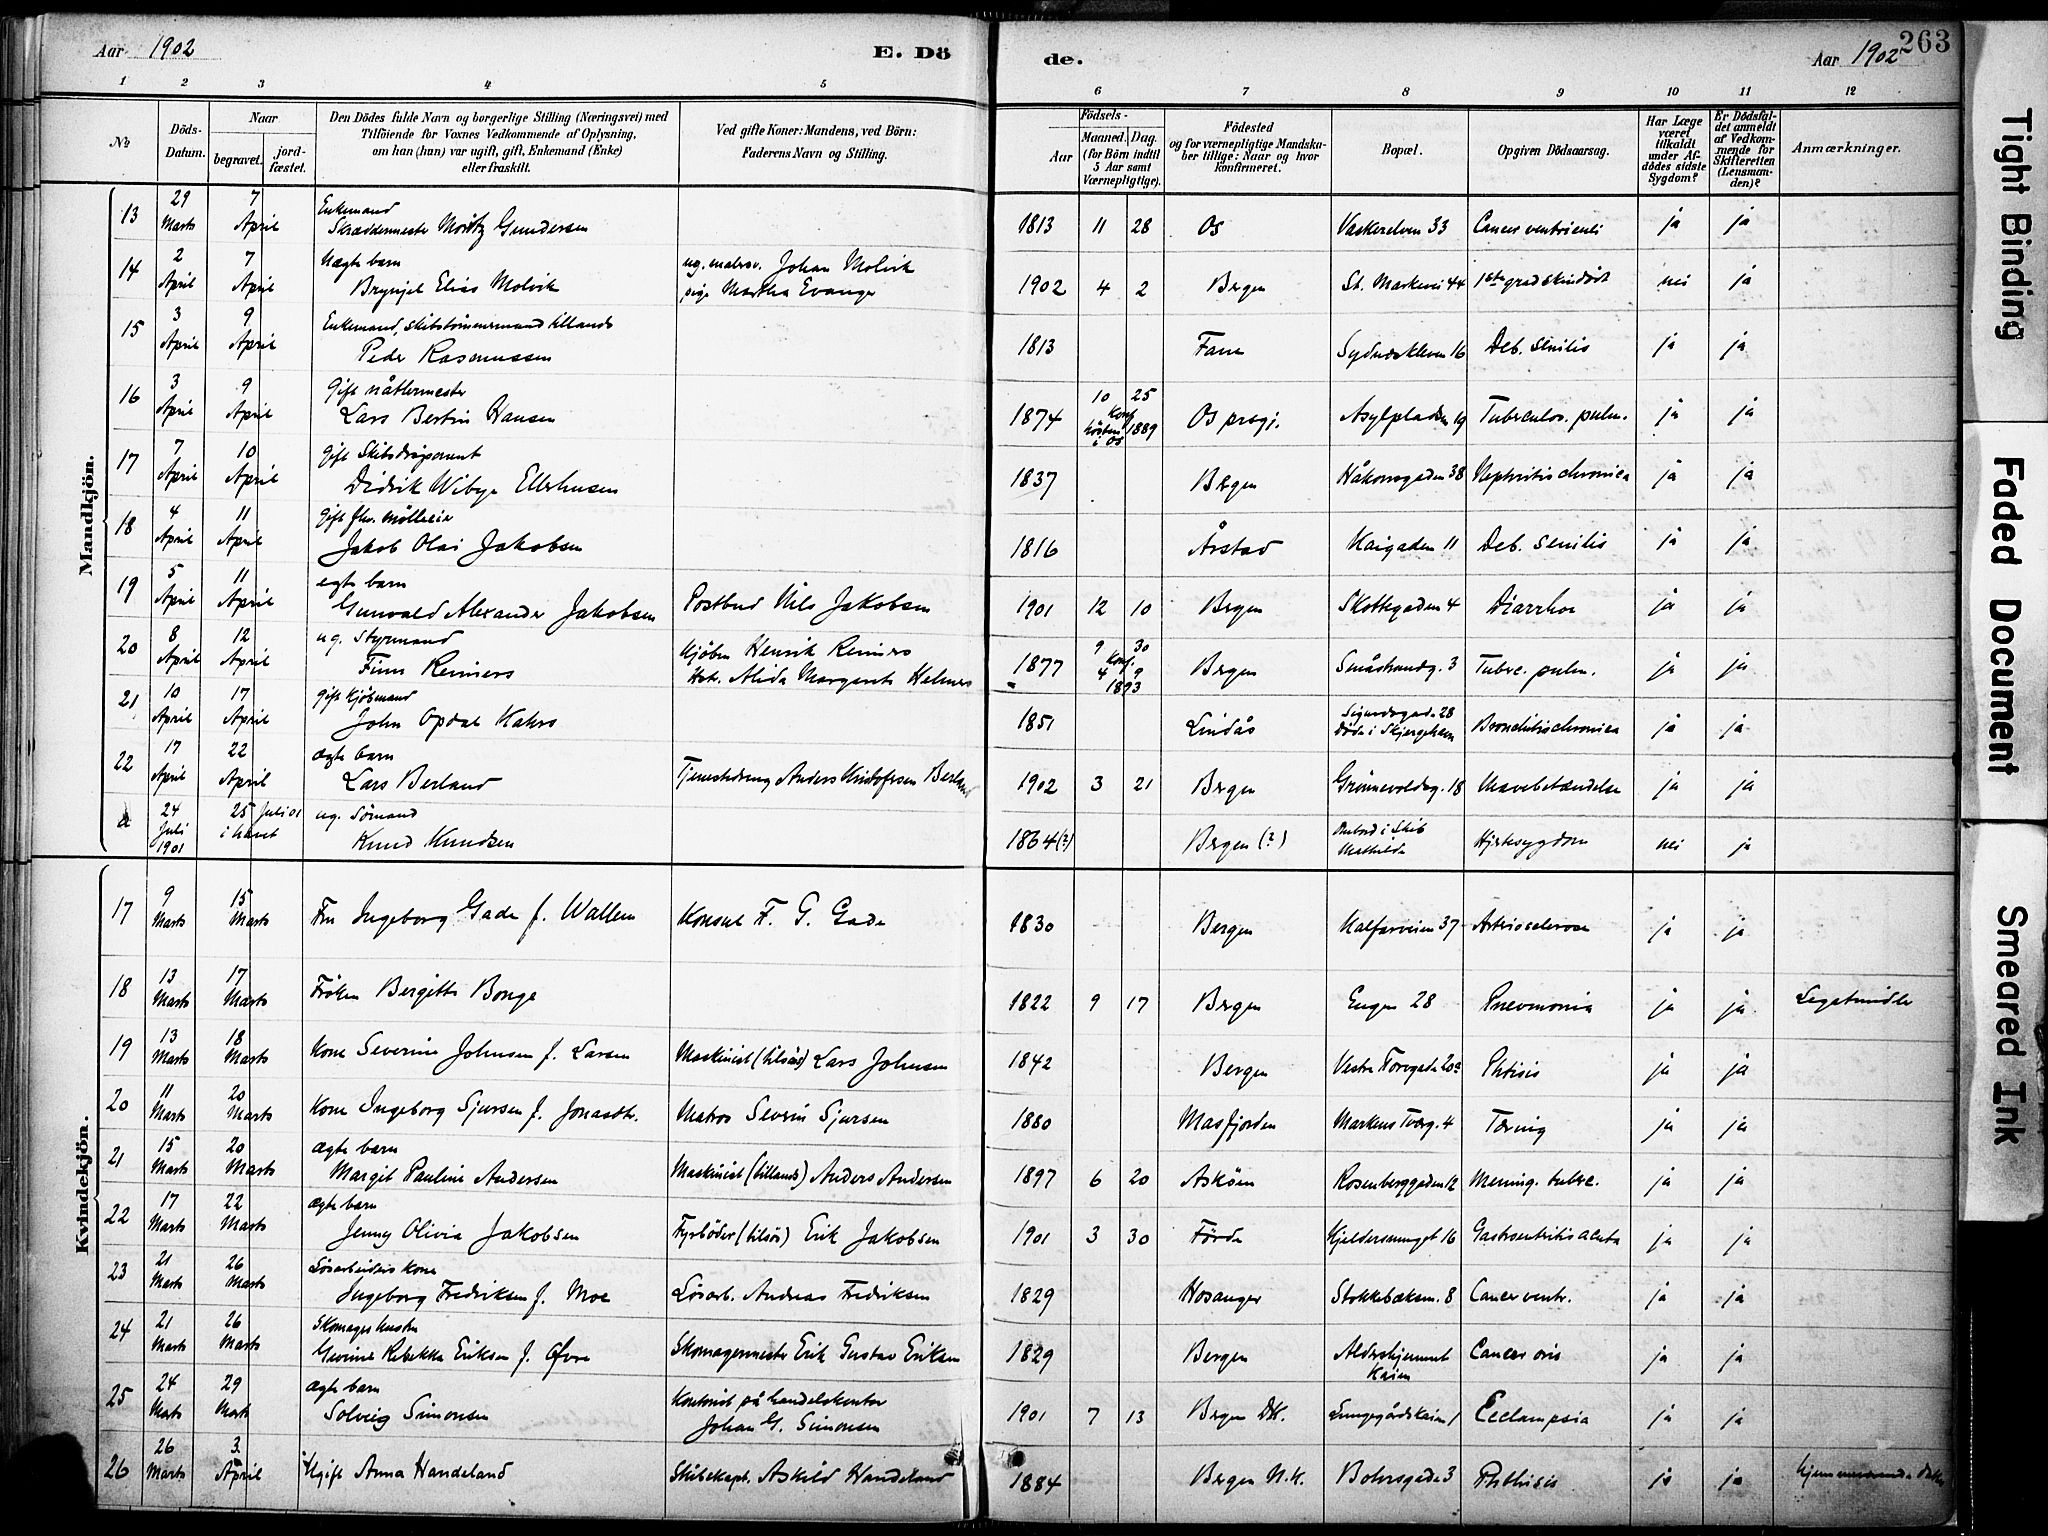 Aar 1902 E. Dö de. Aar 1902 263
1 2 3 4 5 6 7 8 9 10 11 12
№
Döds-Datum.
Naar
begravet. jord-fæstet.
Den Dödes fulde Navn og borgerlige Stilling (Næringsvei) med
Tilföiende for Voxnes Vedkommende af Oplysning,
om han (hun) var ugift, gift, Enkemand (Enke)
eller fraskilt.
Ved gifte Koner: Mandens, ved Börn:
Faderens Navn og Stilling.
Födsels-
Aar Maaned. Dag.
(for Börn indtil
5 Aar samt
Værnepligtige).
Födested
og for værnepligtige Mandska-
ber tillige: Naar og hvor
konfirmeret.
Bopæl.
Opgiven Dödsaarsag.
Har Læge
været
tilkaldt
under Af-
dödes sidste
Sygdom?
Er Dödsfal-
det anmeldt
af Vedkom-
mende for
Skifteretten
(Lensman-
den)?
Anmærkninger.
Mandkjön.
13 29 Marts 7 April Enkemand
Skræddermester Moritz Gundersen 1813 11 28 Os Vaskerelven 33 Cancer ventriculi ja ja
14 2 April 7 April Uægte barn ug. matros. Johan Molvik
Brynjel Elias Molvik pige Martha Evanger 1902 4 2 Bergen St. Markevei 44 nei ja
15 3 April 9 April Enkemand, skibstömmermand tillands
Peder Rasmussen 1813 Fane Sydneskleven 16 Deb. senilis ja ja
16 3 April 9 April Gift
Lars Bertin Hansen 1874 10 25 Konf. Hösten 1889 i Os Os prsgj. Asylpladsen 19 Tuberculos. pulm. ja ja
17 7 April 10 April gift
Didrik Wibye Ellerhusen 1837 Bergen Håkonsgaden 38 Nephritis chronica ja ja
18 4 April 11 April gift fhv. mölleeier
Jakob Olai Jakobsen 1816 Årstad Kaigaden 11 Deb. senilis ja ja
19 5 April 11 April egte barn
Gunvald Alexander Jakobsen Postbud Nils Jakobsen 1901 12 10 Bergen Skottegaden 4 Diarrhoe ja ja
20 8 April 12 April ug. Styrmand Kjöbm Henrik Reimers
Finn Reimers Hst. Alida Margarete Helmers 1877 9 30 Konf. 4/9 1893 Bergen Småstrandg. 3 Tuberc. pulm. ja ja
21 10 April 17 April gift Kjöbmand
John Opdal Kahrs 1851 Lindås Sigurdsgad. 28
Döde i Skjergehavn Bronchitis chronica ja ja
22 17 April 22 April ægte barn
Lars Berland Anders Kristofersen Berland 1902 3 21 Bergen Grönnevoldsg. 18 Mavebetændelse ja ja
a 24 Juli 1901 25 Juli 01 i havet ug. Sömand
Knud Knudsen 1864(?) Bergen (?) Ombord i Skib
Mathilde Hjertesygdom nei ja
Kvindekjön.
17 9 Marts 15 Marts Fru Ingeborg Gade f. Wallem Konsul F. G. Gade 1830 Bergen Kalfarveien 37 Arteriosclerose ja ja
18 13 Marts 17 Marts Fröken Bergitte Bonge 1822 9 17 Bergen Engen 28 Pneumonia ja ja Legatmidle
19 13 Marts 18 Marts Kone Severine Johnsen f. Larsen Maskinist (tilsös) Lars Johnsen 1842 Bergen Vestre Torvgade 20a Phtisis ja ja
20 11 Marts 20 Marts Kone Ingeborg Sjursen f. Jonasdtr. Matros Severin Sjursen 1880 Masfjorden Markens Tverg. 4 Tæring ja ja
21 15 Marts 20 Marts ægte barn
Margit Pauline Andersen Maskinist (tillands) Anders Andersen 1897 6 20 Asköen Rosenberggaden 12 Mening. tuberc. ja ja
22 17 Marts 22 Marts ægte barn
Jenny Olivia Jakobsen Fyrböder (tilsös) Erik Jakobsen 1901 3 30 Förde Kjeldersmuget 16 Gastroentritis acuta ja ja
23 21 Marts 26 Marts Lösarbeiders kone
Ingeborg Fredriksen f. Moe Lösarb. Andreas Fedriksen 1829 Hosanger Stokkebæksm. 8 Cancer ventr. ja ja
24 21 Marts 26 Marts Skomager hustru
Gurine Rebekka Eriksen f. Øvre Skomagermester Erik Gustav Eriksen 1829 Bergen Aldershjemmet
Kaien Cancer oris ja ja
25 24 Marts 29 Marts ægte barn Kontorist på handelskontor
Solveig Simonsen Johan G. Simonsen 1901 7 13 Bergen DK. Lungegårdskaien 1 Eclampsia ja ja
26 26 Marts 3 April Ugift Anna Handeland Skibskapt. Askild Handeland 1884 Bergen N.K. Bohrsgade 3 Phthisis ja ja
Tight Binding
Faded Document
Smeared Ink